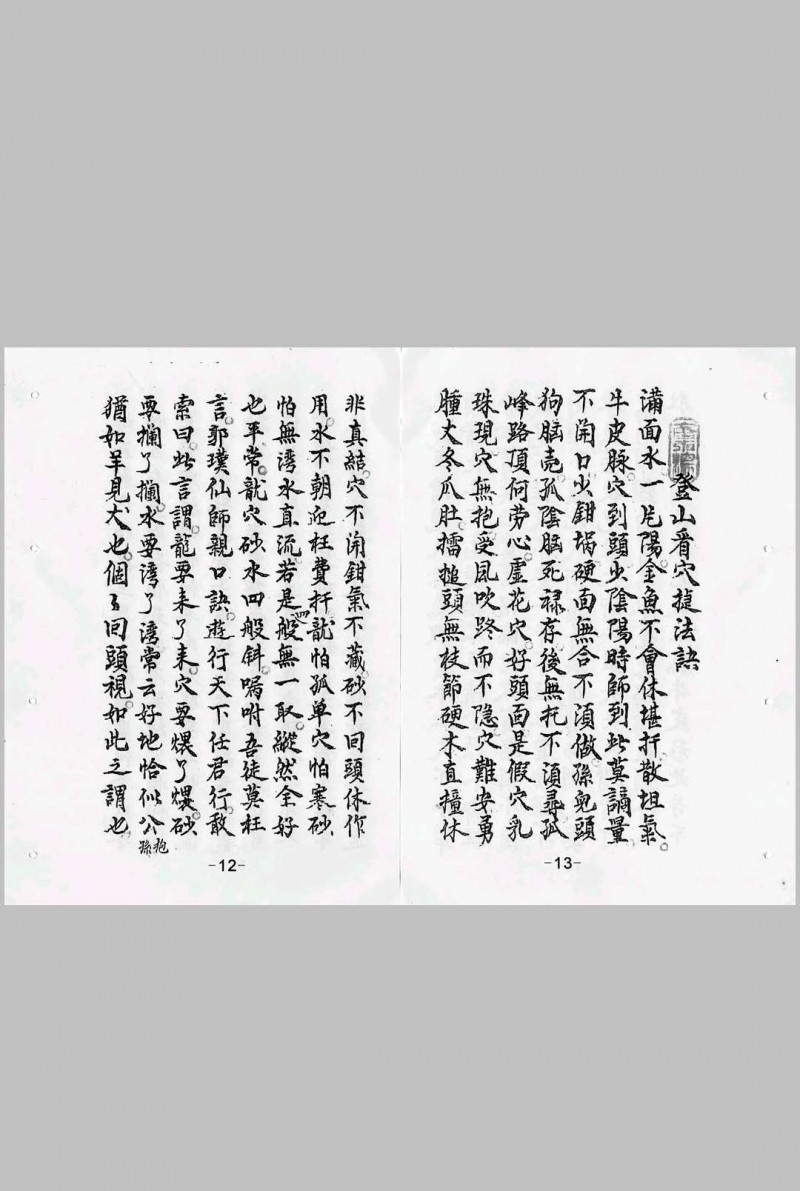 登山看穴捷法訣
滿面水一片陽金魚不會休堪扦散坦氣。
牛皮脉穴到頭少陰陽時師到此莫謫量
不開口少鉗堝硬面無合不湏做孫兒頭
狗腦売孤陰腦死禄存後無托不湏尋孤
峰路頂何劳心虛花穴好頭面是假穴乳
珠現穴無抱受風吹路而不隐穴難安勇
腫大冬瓜肚擂搥頭無枝節硬木直撞休
-13-
非真結。穴不開鉗氣不藏砂不回頭休作
用。水不朝迎枉費扦龍怕孤单穴怕寒砂
怕無湾水直流。若是四般無一取縱然全好
也平常。龍穴砂水四般斜嘱咐吾徒莫枉
言。郭璞仙師親口訣。遊行天下任君行。敢
索曰此言謂。龍要来了来。穴要煨了煨。砂
要攔了攔。水要湾了湾常云好地恰似公抱孫
猶如羊見犬也。個々回頭視。如此之謂也
-12-